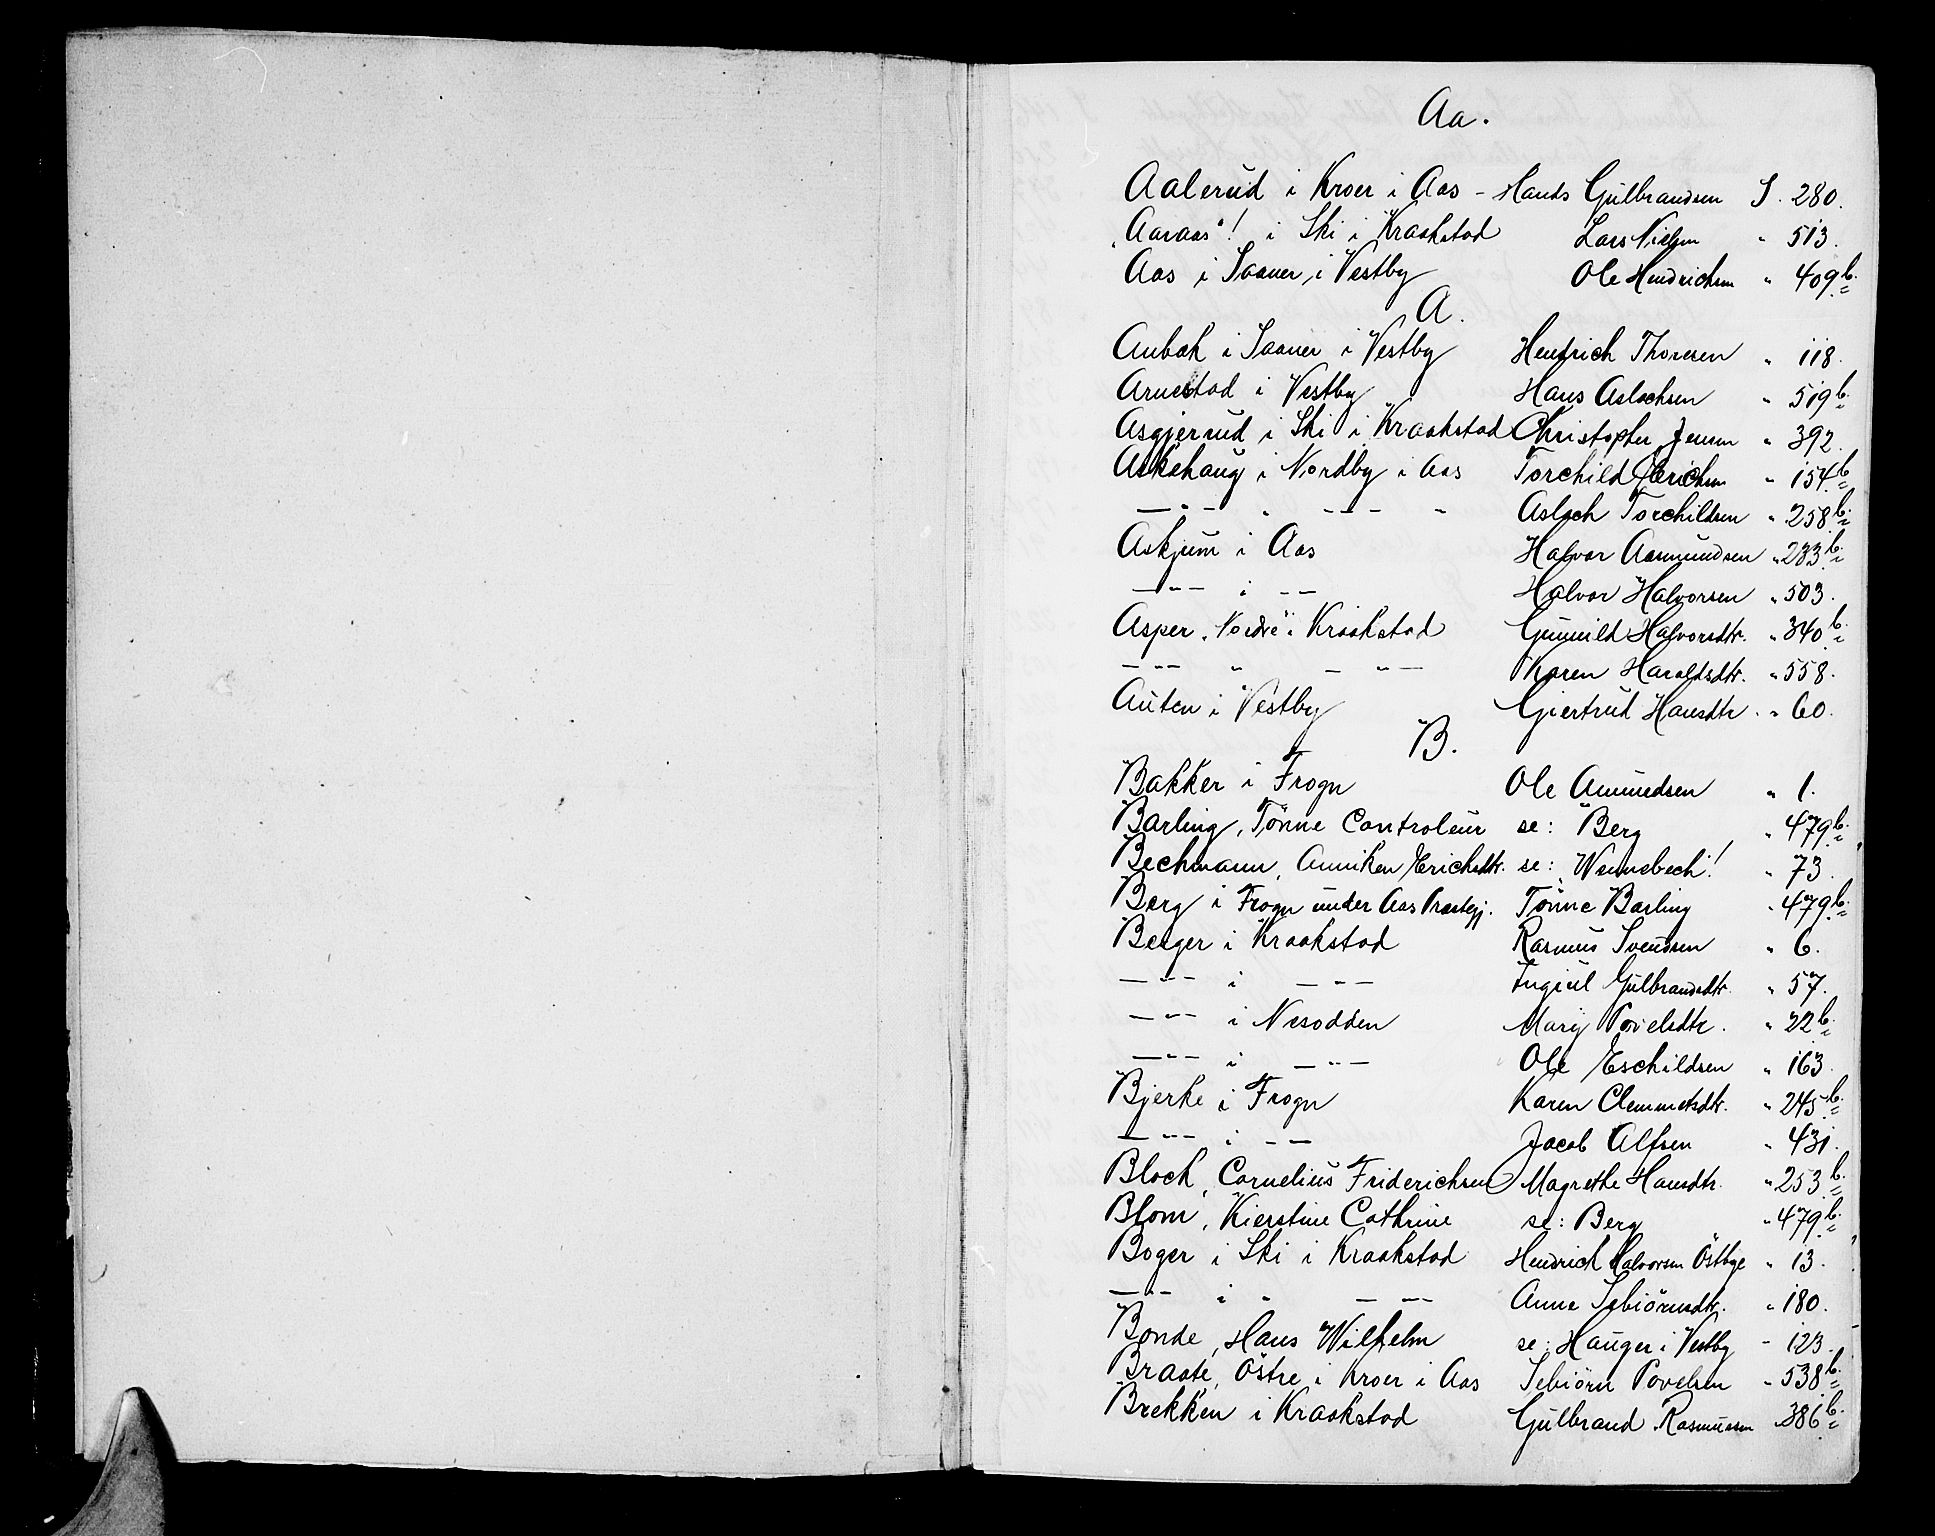 Aa.
Aalerud i Kroer i Aas - Hans Gulbrandsen S. 280.
"Aaraas"! i Ski i Kraakstad Lars Nielsen " 513.
Aas i Saaner i Vestby Ole Hendrichsen " 409b.
A.
Anbæk i Saaner i Vestby Hendrich Thoresen " 118.
Arnestad i Vestby Hans Aslachsen " 519b.
Asgjerrud i Ski i Kraakstad Christopher Jensen " 392.
Askehaug i Nordby i Aas Torchild Erichsen " 154b.
— " — " — — — " Aslach Torchildsen " 258b.
Askjum i Aas Halvor Aasmundsen " 283b.
— " — i — — Halvor Halvorsen " 503.
Asper, "Nordre" i Kraakstad Gunnild Halvorsdtr. " 340b.
— " — " — " — Karen Haraldsdtr. " 558.
Auten i Vestby Giertrud Hansdtr. " 60.
B.
Bakker i Frogn Ole Amundsen " 1.
Barling, Tönne Controleur se: Berg " 479b.
Bechmann, Anniken Erichsdtr. se: Wennebech! " 73.
Berg i Frogn under Aas Præstegj. Tönne Barling " 479b.
Berger i Kraakstad Rasmus Svendsen " 6.
— " — i — " — Ingiel Gulbrandsdtr. " 57.
— " — i Nesodden Mari Povelsdtr. " 22b.
— " — i — " — Ole Eschildsen " 163.
Bjerke i Frogn Karen Clemmetsdtr. " 245b.
— " — i — — Jacob Alfsen " 431.
Block, Cornelius Friderichsen Magrethe Hansdtr. " 253b.
Blom, Kierstine Cathrine se: Berg " 479b.
Boger i Ski i Kraakstad Hendrich Halvorsen Östbye " 13.
— " — i " — " — Anne Sebiörnsdtr. " 180.
Bonde, Hans Wilhelm se: Hauger i Vestby - 123.
Braate, Östre i Kroer i Aas Sebiörn Povelsen " 538b.
Brekken i Kraakstad Gulbrand Rasmussen " 386b.